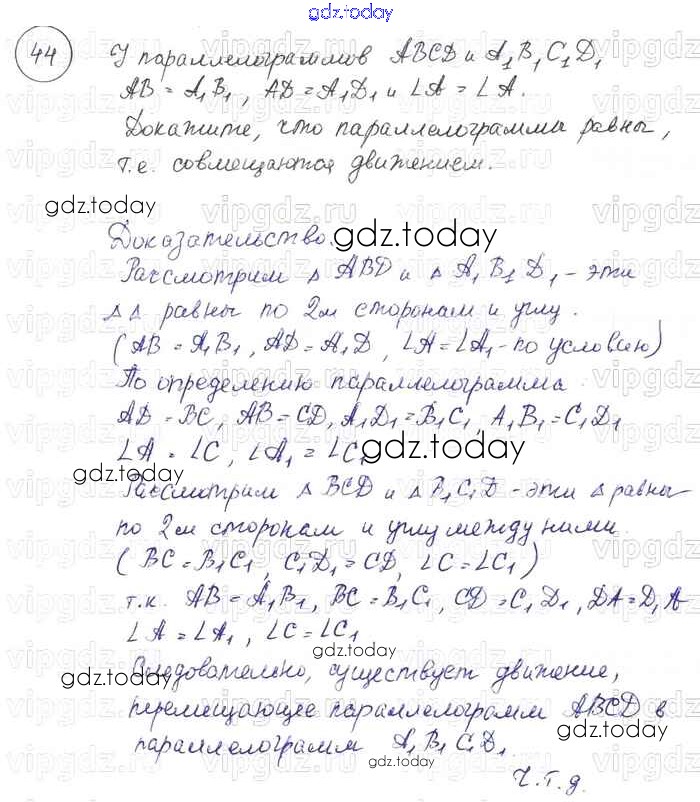 gdz.today
44
У параллелограммов ABCD и A₁B₁C₁D₁
AB = A₁B₁, AD = A₁D₁ и ∠A = ∠A.
Докажите, что параллелограммы равны,
т.е. совмещаются движением.
gdz.today
Доказательство. gdz.today
Рассмотрим △ ABD и △ A₁B₁D₁ – эти
△△ равны по 2м сторонам и углу.
(AB = A₁B₁, AD = A₁D, ∠A = ∠A₁ - по условию)
По определению параллелограмма
AD = BC, AB = CD, A₁D₁ = B₁C₁, A₁B₁ = C₁D₁
∠A = ∠C, ∠A₁ = ∠C₁ gdz.today
gdz.today
Рассмотрим △ BCD и △ B₁C₁D – эти △ равны
по 2м сторонам и углу между ними.
(BC = B₁C₁, C₁D₁ = CD, ∠C = ∠C₁)
т.к. AB = A₁B₁, BC = B₁C₁, CD = C₁D₁, DA = D₁A
∠A = ∠A₁, ∠C = ∠C₁
gdz.today
Следовательно, существует движение,
gdz.today
перемещающее параллелограмм ABCD в
параллелограмм A₁B₁C₁D₁.
gdz.today
Ч.т.д.
vipgdz.ru